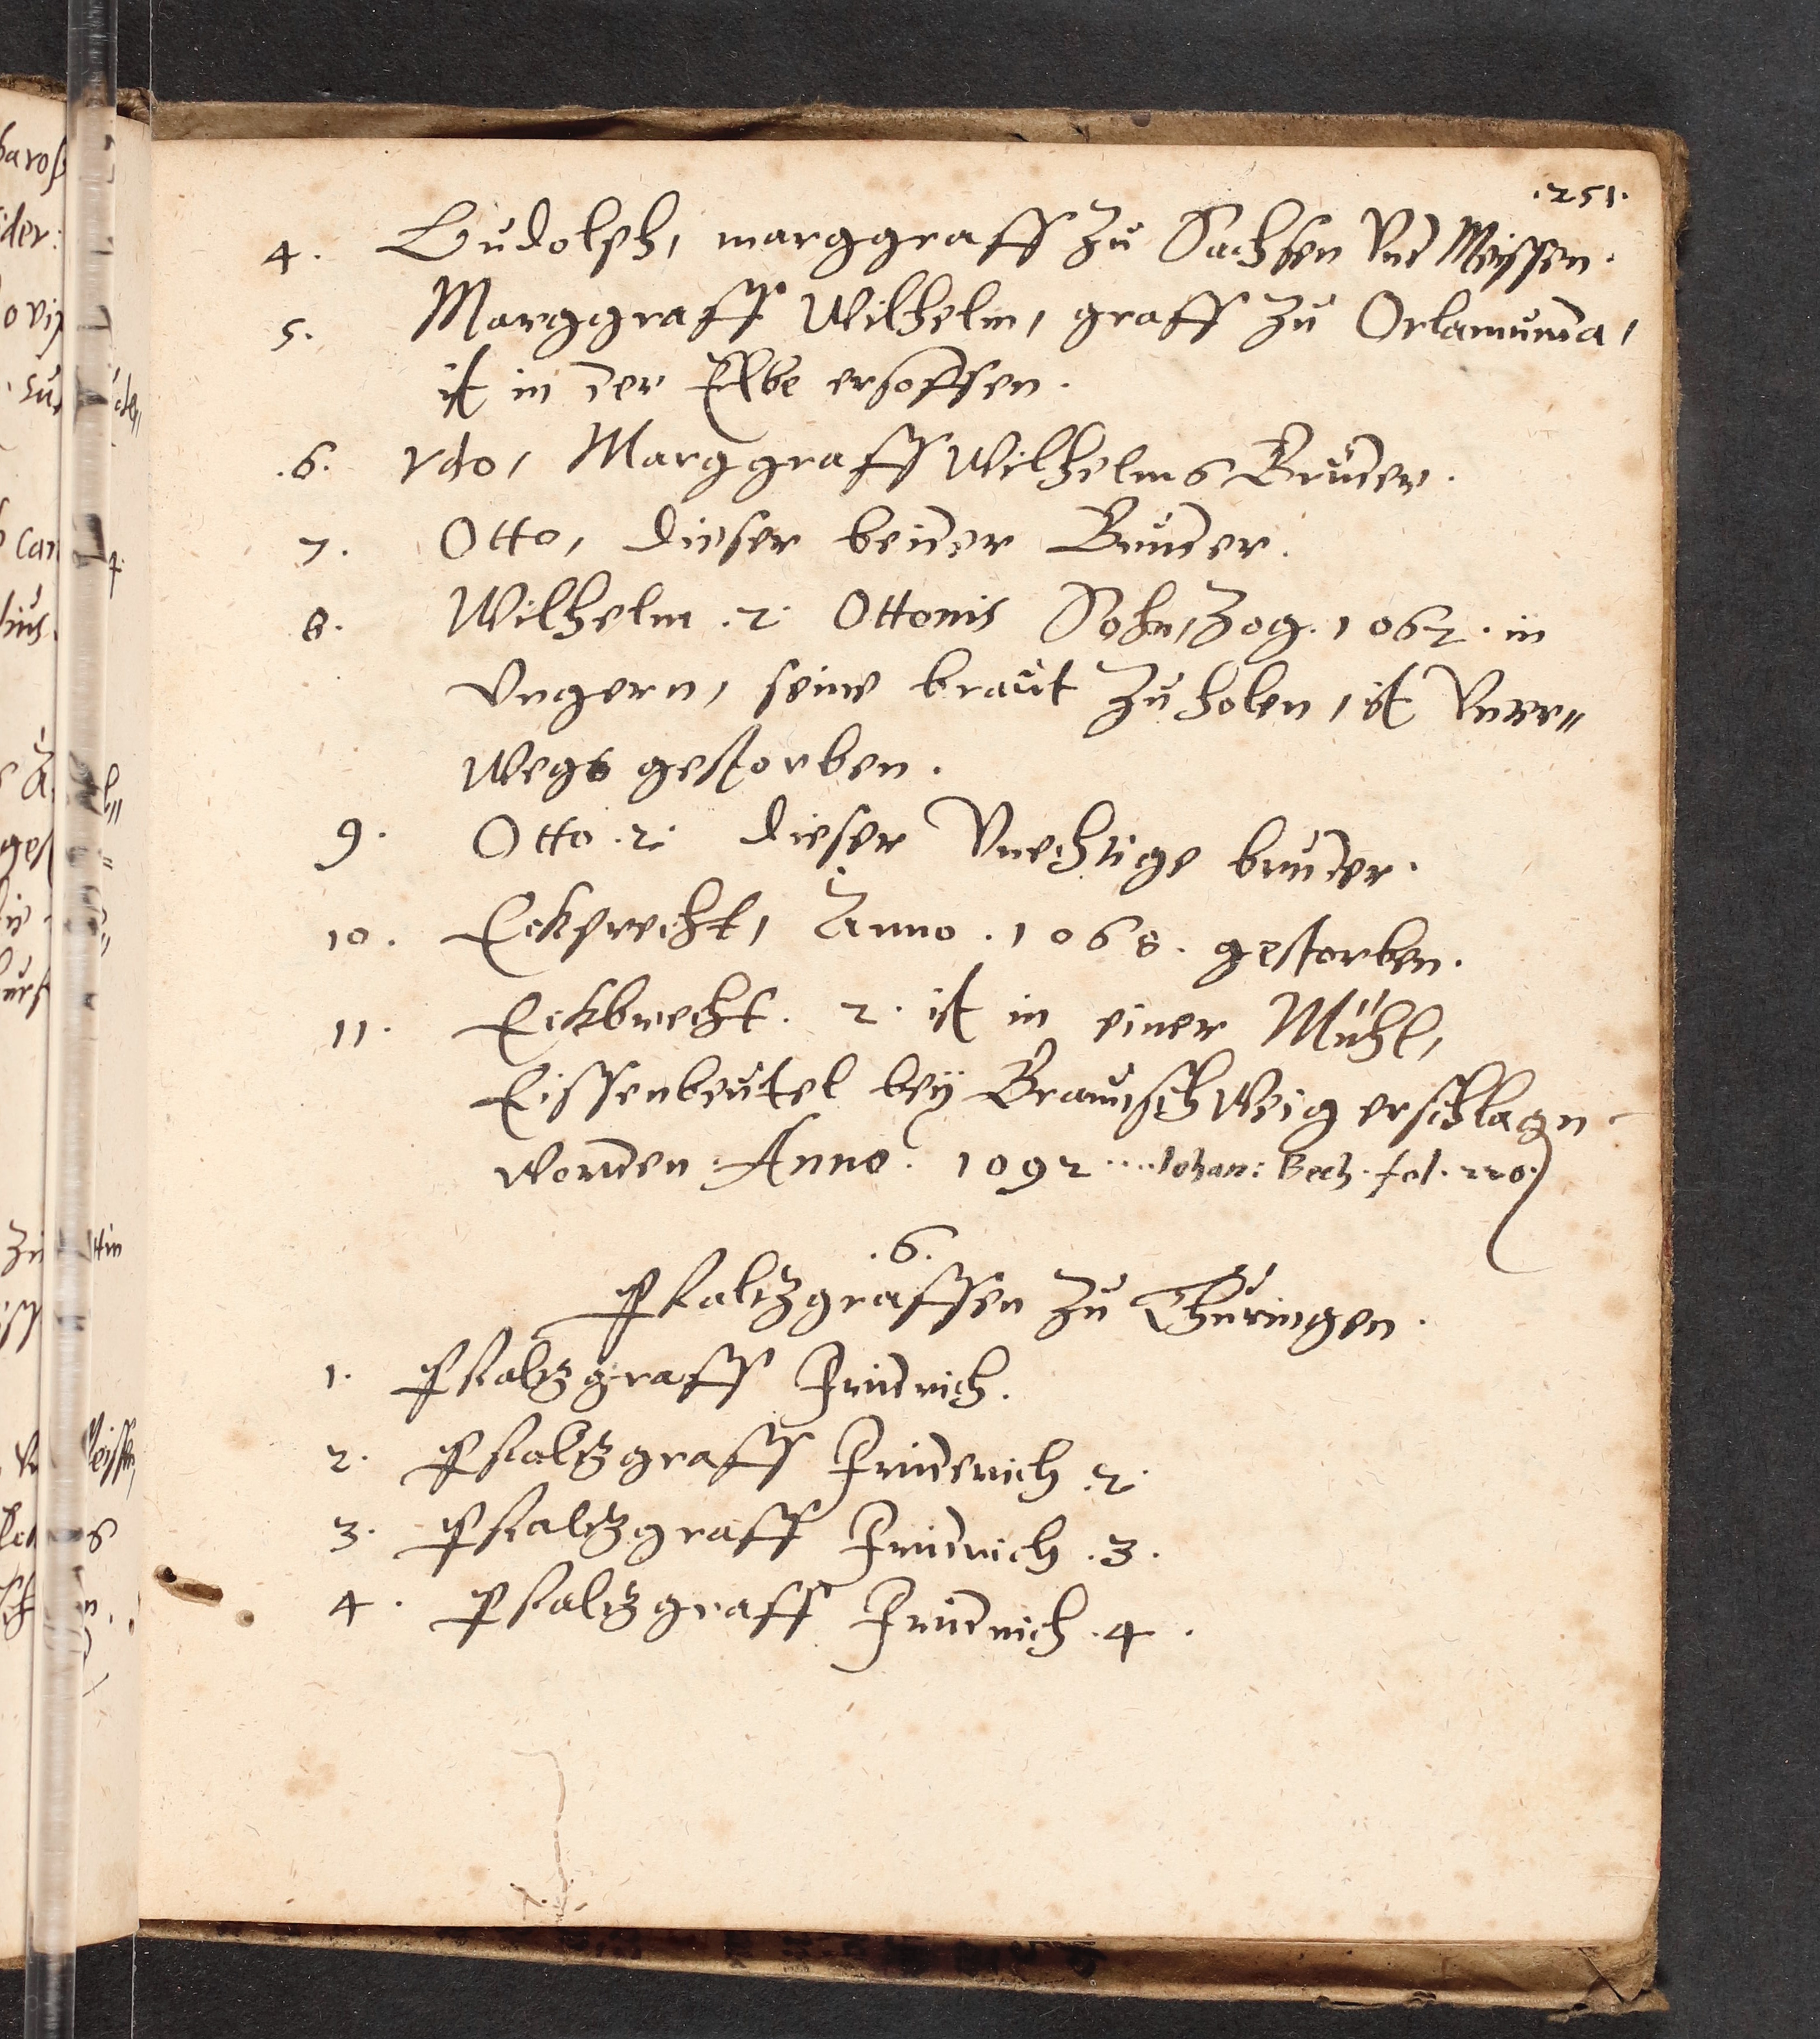 .251.
4. Ludolph, marggraff zu Sachsen Vnd Meissen.
5. Marggraff Wilhelm, graff zu Orlamunda,
ist in der Elbe ersoffen.
.6. Vdo, Marggraff Wilhelms Bruder.
7. Otto, dieser beider Bruder.
8. Wilhelm .2. Ottonis Sohn, zog. 1062. in
Vngern, seine braut zu holen, ist Vnter⸗
wegs gestorben.
9. Otto .2. dieser Vnechtige bruder.
10. Eckprecht, Anno .1068. gestorben.
11. Eckbrecht. 2. ist in einer Mühl,
Eissenbeutel bey Braunschweig erschlagn
worden Anno. 1092 .... Johan: Bech. fol. 220.)
.6.
Pfaltzgraffen zu Thüringen.
1. Pfaltzgraff Fridrich.
2. Pfaltzgraff Friderich .2.
3. Pfaltzgraff Fridrich .3.
4. Pfaltzgraff Fridrich .4.